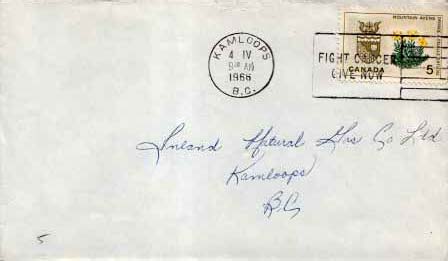 KAMLOOPS
4 IV
9 AM
1966
B.C.
FIGHT CANCER
GIVE NOW
MOUNTAIN AVENS
CANADA 5
Inland Natural Gas Co Ltd
Kamloops
B.C
5